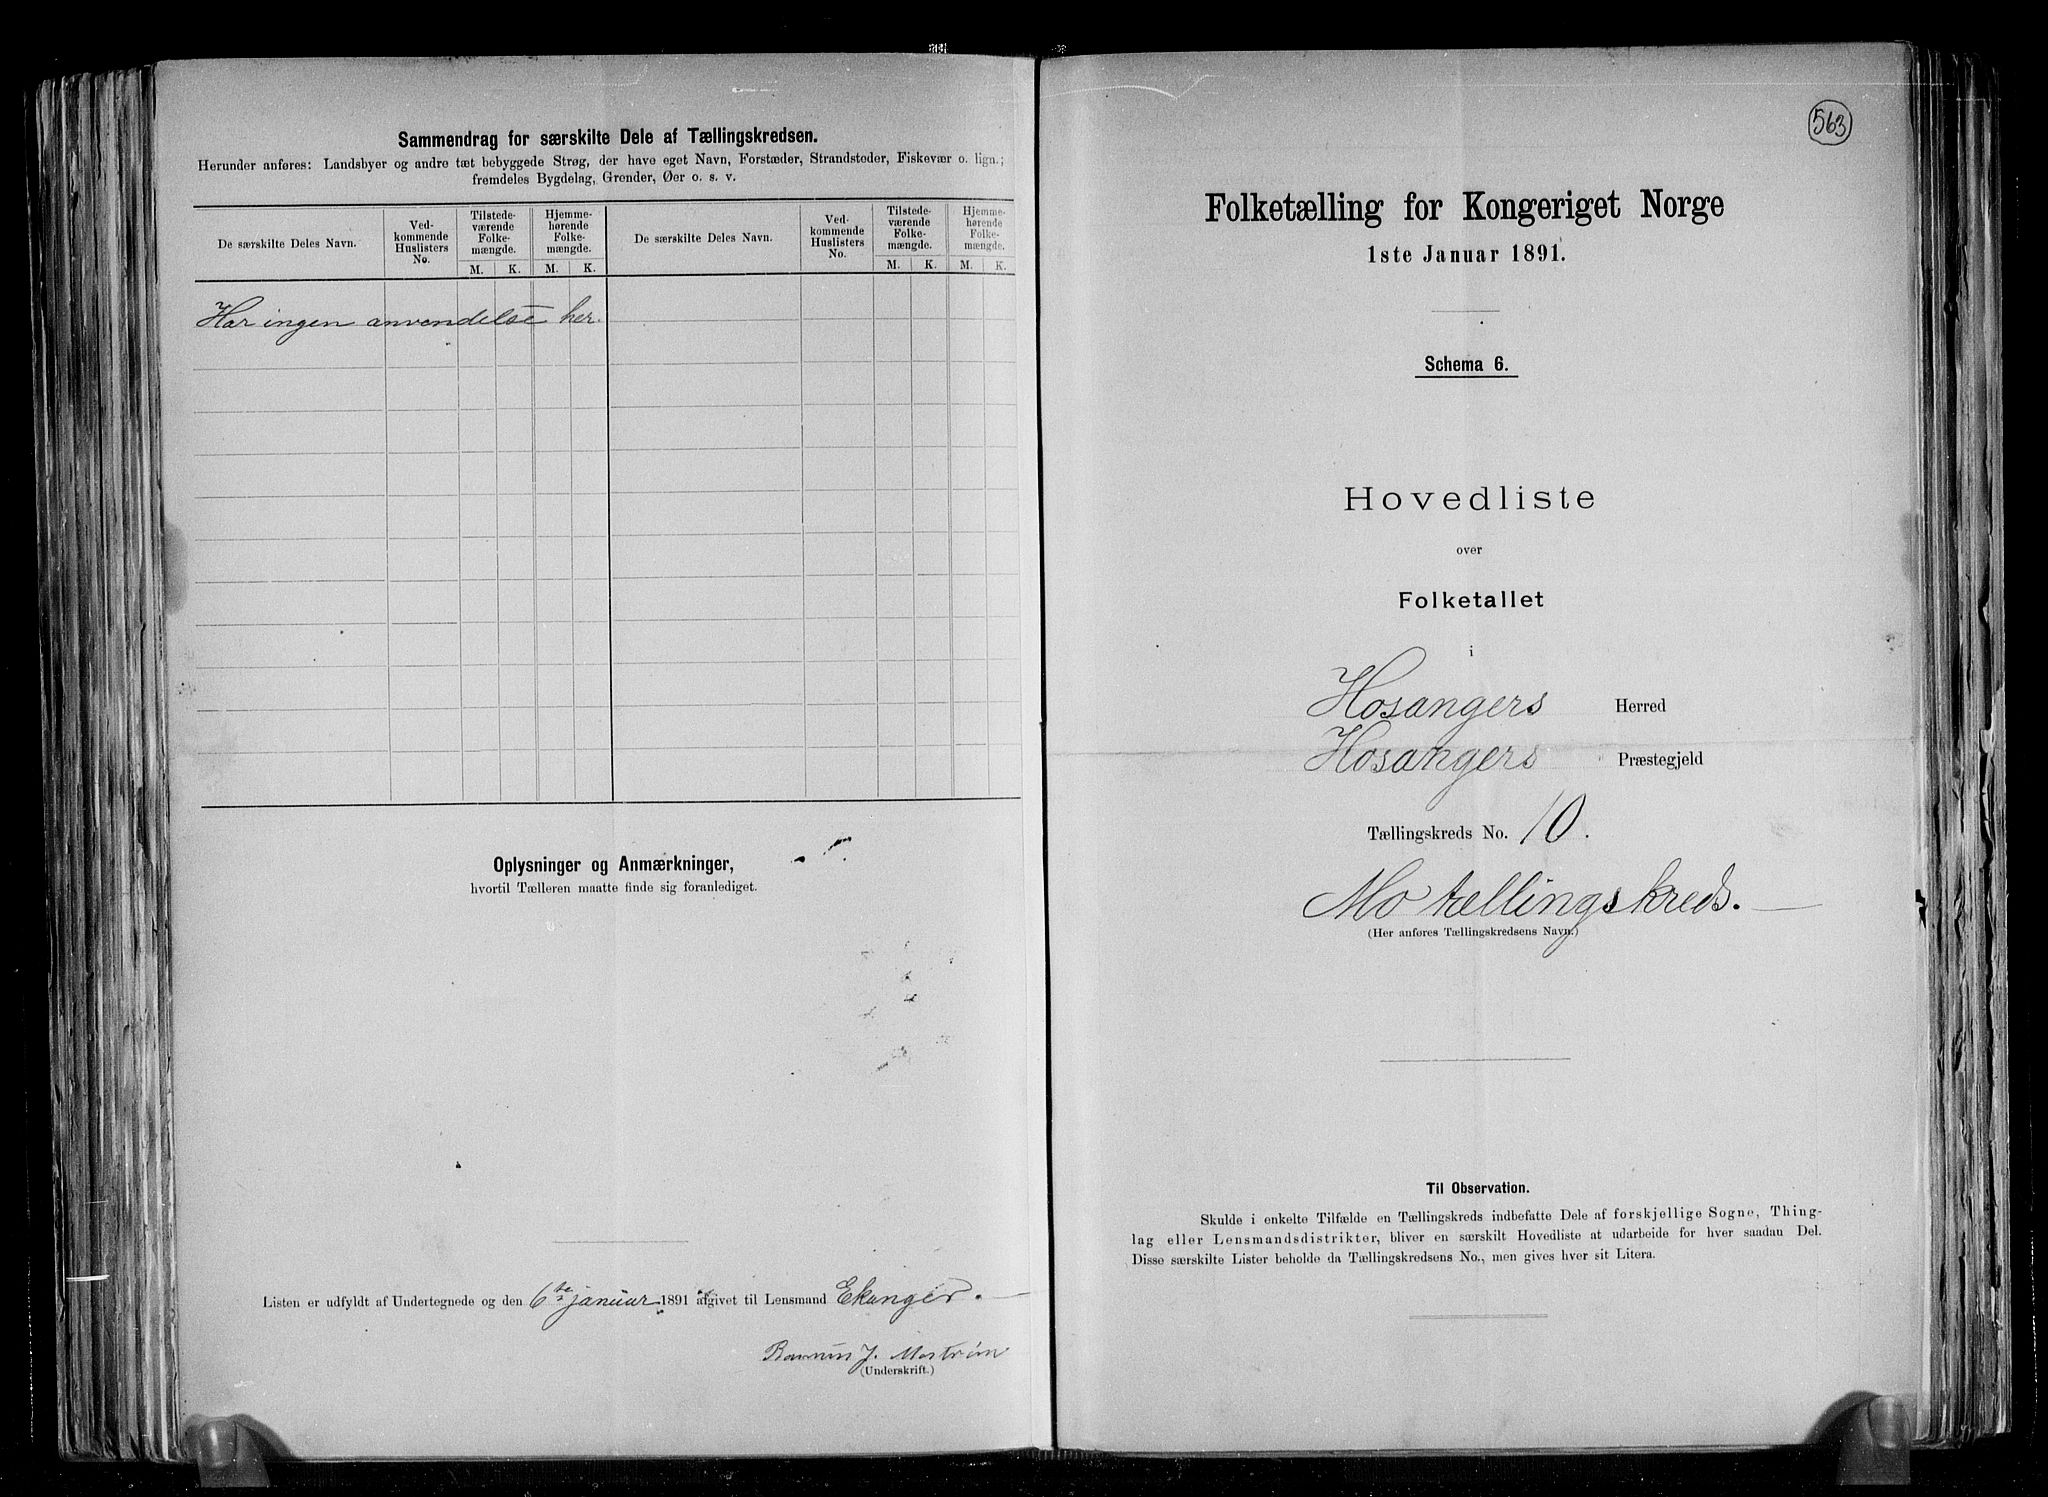 Sammendrag for særskilte Dele af Tællingskredsen.
Herunder anføres: Landsbyer og andre tæt bebyggede Strøg, der have eget Navn, Forstæder, Strandsteder, Fiskevær o. lign.;
fremdeles Bygdelag, Grender, Øer o. s. v.
De særskilte Deles Navn.
Ved-
kommende
Huslisters
No.
Tilstede-
værende
Folke-
mængde.
M. K.
Hjemme-
hørende
Folke-
mængde.
M. K.
De særskilte Deles Navn.
Ved-
kommende
Huslisters
No.
Tilstede-
værende
Folke-
mængde.
M. K.
Hjemme-
hørende
Folke-
mængde.
M. K.
Har ingen anvendelse her.
Oplysninger og Anmærkninger,
hvortil Tælleren maatte finde sig foranlediget.
Listen er udfyldt af Undertegnede og den 6te januar 1891 afgivet til Lensmand Ekanger.
Rasmus J. Mostrøm
(Underskrift.)
563
Folketælling for Kongeriget Norge
1ste Januar 1891.
Schema 6.
Hovedliste
over
Folketallet
i
Hosangers Herred
Hosangers Præstegjeld
Tællingskreds No. 10.
Mo tællingskreds.
(Her anføres Tællingskredsens Navn.)
Til Observation.
Skulde i enkelte Tilfælde en Tællingskreds indbefatte Dele af forskjellige Sogne, Thing-
lag eller Lensmandsdistrikter, bliver en særskilt Hovedliste at udarbeide for hver saadan Del.
Disse særskilte Lister beholde da Tællingskredsens No., men gives hver sit Litera.